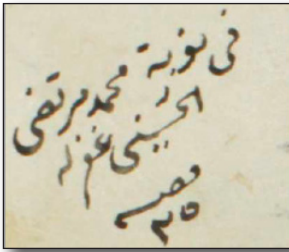 في نوبة محمد مرتضى
الحسيني غفر له
بمصر